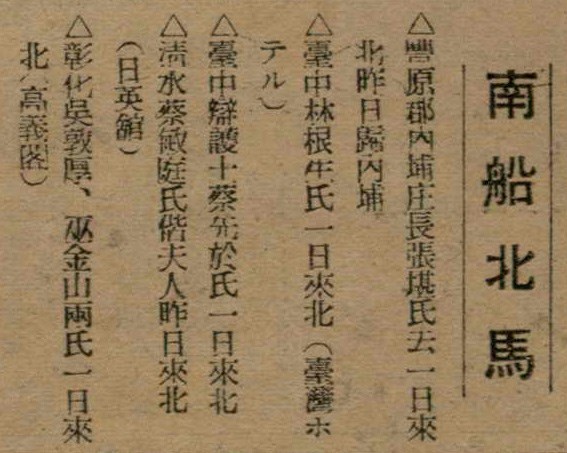 南船北馬
△豐原郡內埔庄長張堪氏去一日來
北昨日歸內埔
△臺中林根生氏一日來北(臺灣ホ
テル)
△臺中辯護士蔡先於氏一日來北
△淸水蔡敏庭氏偕夫人昨日來北
(日英舘)
△彰化吳敦厚、巫金山兩氏一日來
北(高義閣)